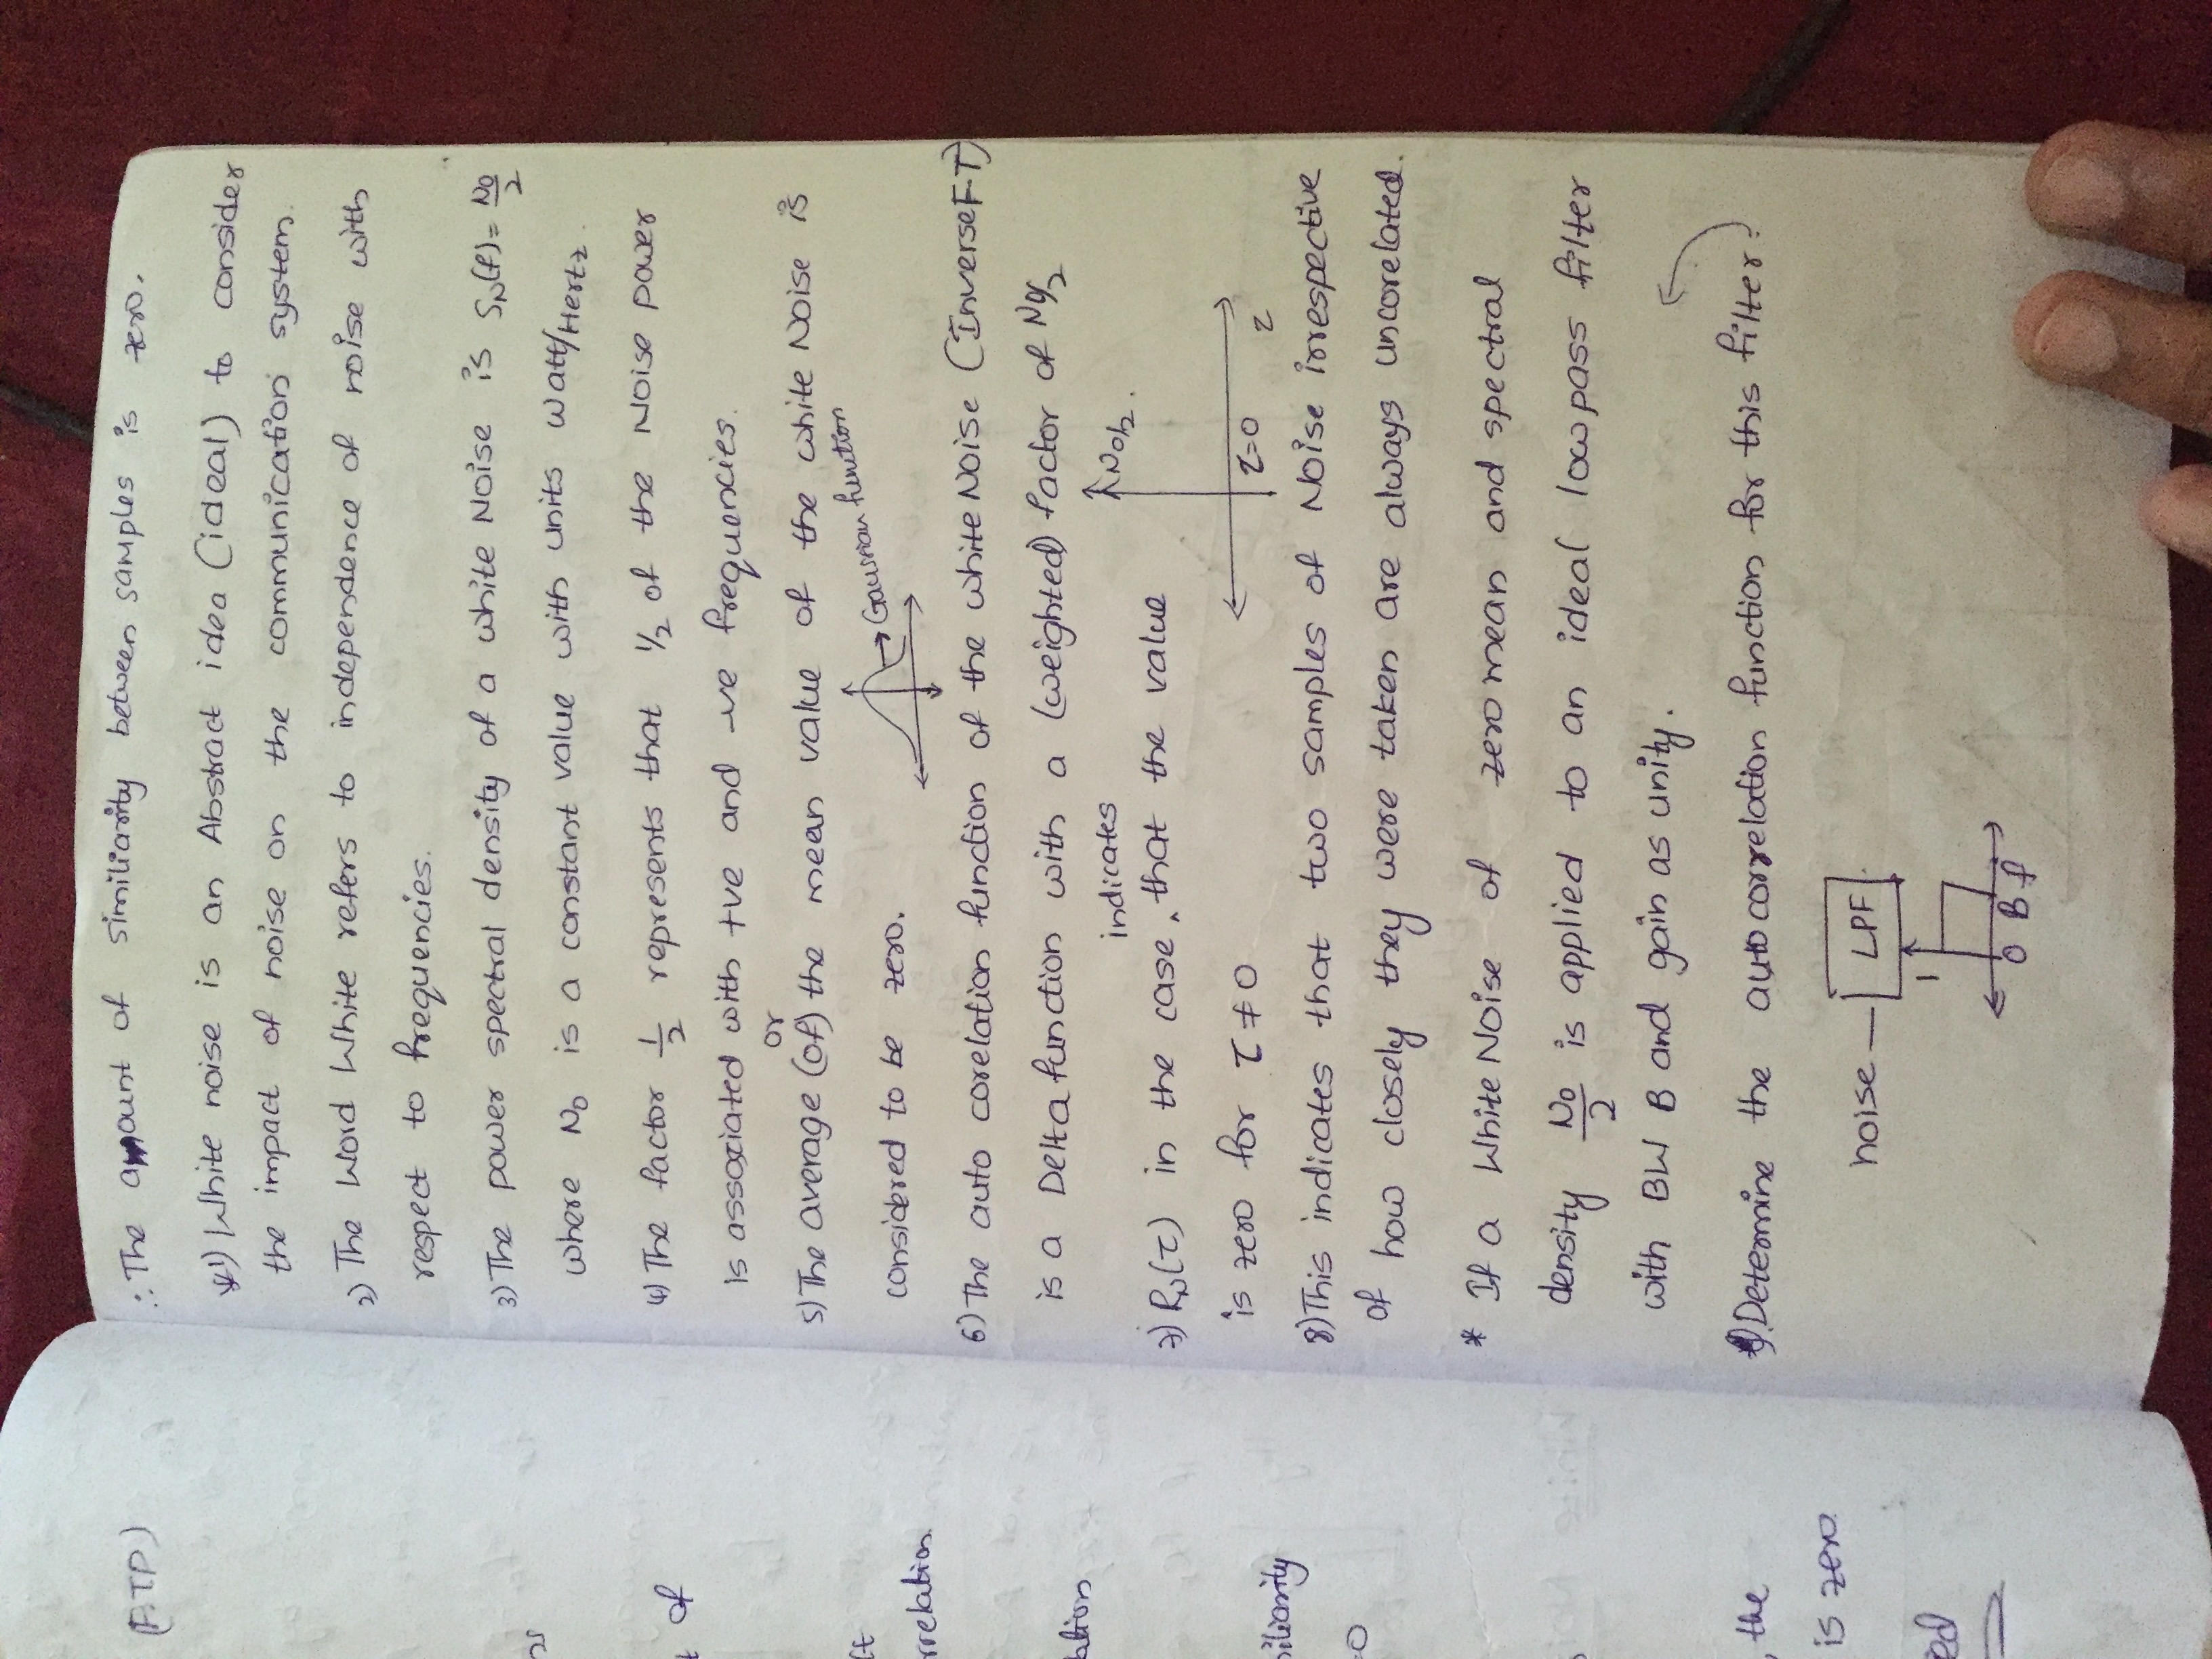 (F.TP)
ns
t of
ft
rrelation
lation
miliarity
=0
, the
is zero.
ed
∴ The amount of similiarity between samples is zero.
*1) White noise is an Abstract idea (ideal) to consider
the impact of noise on the communication system.
2) The Word White refers to independence of noise with
respect to frequencies.
3) The power spectral density of a white Noise is SN(f) = No/2
where No is a constant value with units Watt/Hertz.
4) The factor 1/2 represents that 1/2 of the Noise power
is associated with +ve and -ve frequencies.
or
5) The average (of) the mean value of the white Noise is
considered to be zero.
→ Gaussian function
6) The auto corelation function of the white Noise (Inverse F.T)
is a Delta function with a (weighted) factor of No/2
No/2.
indicates
7) RN(τ) in the case ‸ that the value
is zero for τ ≠ 0
τ=0
τ
8) This indicates that two samples of Noise irrespective
of how closely they were taken are always uncorelated.
* If a White Noise of zero mean and spectral
density No/2 is applied to an ideal lowpass filter
with BW B and gain as unity.
Determine the auto correlation function for this filter?
noise — LPF
1
0 B f